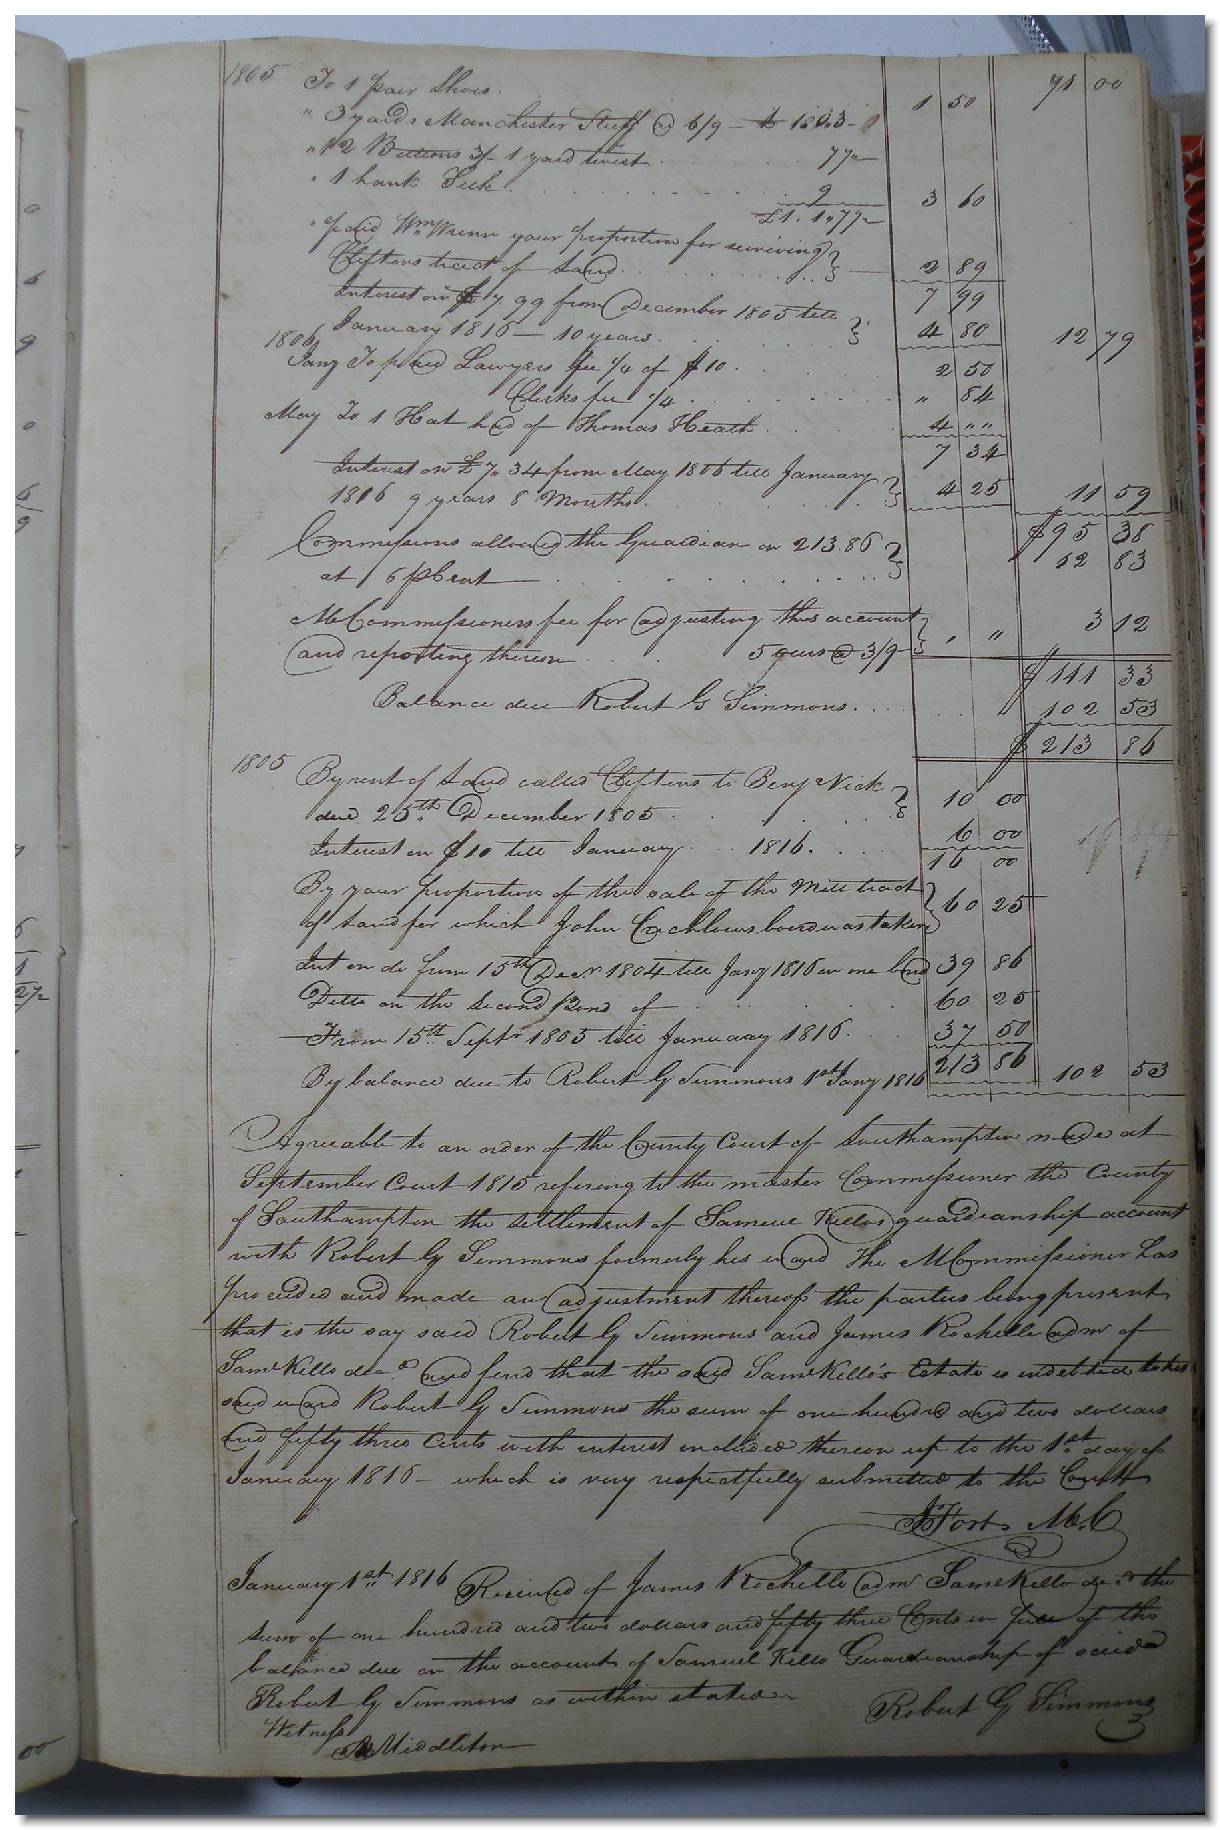 1805 To 1 pair Shoes . 1 50 71 00
" 3 yards Manchester Stuff @ 6/9 - £ 1.0.3 -
" 12 Buttons 3/- 1 yard twist . . 7 7½
" 1 hank Silk . . . . 9 3 60
£1. 1. 7½
" paid Wm. Wrenn your proportion for surviving }
Cliftons tract of Land . . . . 2 89
7 99
Interest on $7.99 from December 1805 till }
January 1816 - 10 years . . . 4 80 12 79
1806
Jany To paid Lawyers fee ¼ of $10 . . . 2 50
Clerks fee ¼ . . . " 84
May To 1 Hat had of Thomas Heath . . . 4 " "
7 34
Interest on £ 7. 34 from May 1806 till January }
1816 9 years 8 Months . . . 4 25 11 59
$95 38
Commissions allowed the Guardian on 213.86 }
at 6 pCent . . . 12 83
M Commissioners fee for adjusting this account }
and reporting thereon . . . 5 @ 3/9 " " 3 12
$ 111 33
Balance due Robert G Simmons . . . . 102 53
$ 213 86
1805 By rent of Land called Cliftons to Benj Vick }
due 25th December 1805 . . . 10 00
Interest on $10 till January . . 1816 . . . 6 00
16 00
By your proportion of the sale of the Mill tract }
of Land for which John Cochlours bond was taken 60 25
Int on do from 15th Decr 1804 till Jany 1816 on one bond 39 86
Ditto on the Second Bond of . . . 60 25
From 15th Septr 1805 till January 1816 . . 37 50
213 86
By balance due to Robert G Simmons 1st Jany 1816 102 53
Agreeable to an order of the County Court of Southampton made at
September Court 1815 refering to the master Commissioner the County
of Southampton the settlement of Samuel Kellos guardianship account
with Robert G Simmons formerly his ward The M Commissioner has
proceeded and made an adjustment thereof the parties being present
that is the say said Robert G Simmons and James Rochelle admr of
Saml Kello decd and find that the said Saml Kello's Estate is indebted to his
said ward Robert G Simmons the sum of one hundred and two dollars
and fifty three Cents with interest included thereon up to the 1st day of
January 1816 - which is very respectfully submitted to the Court
J Fort M. C
January 1st 1816 Received of James Rochelle admr Saml Kello decd the
sum of one hundred and two dollars and fifty three Cents in full of the
balance due on the account of Samuel Kello Guardianship of said
Robert G Simmons as within stated
Robert G Simmons
Witness
Middleton